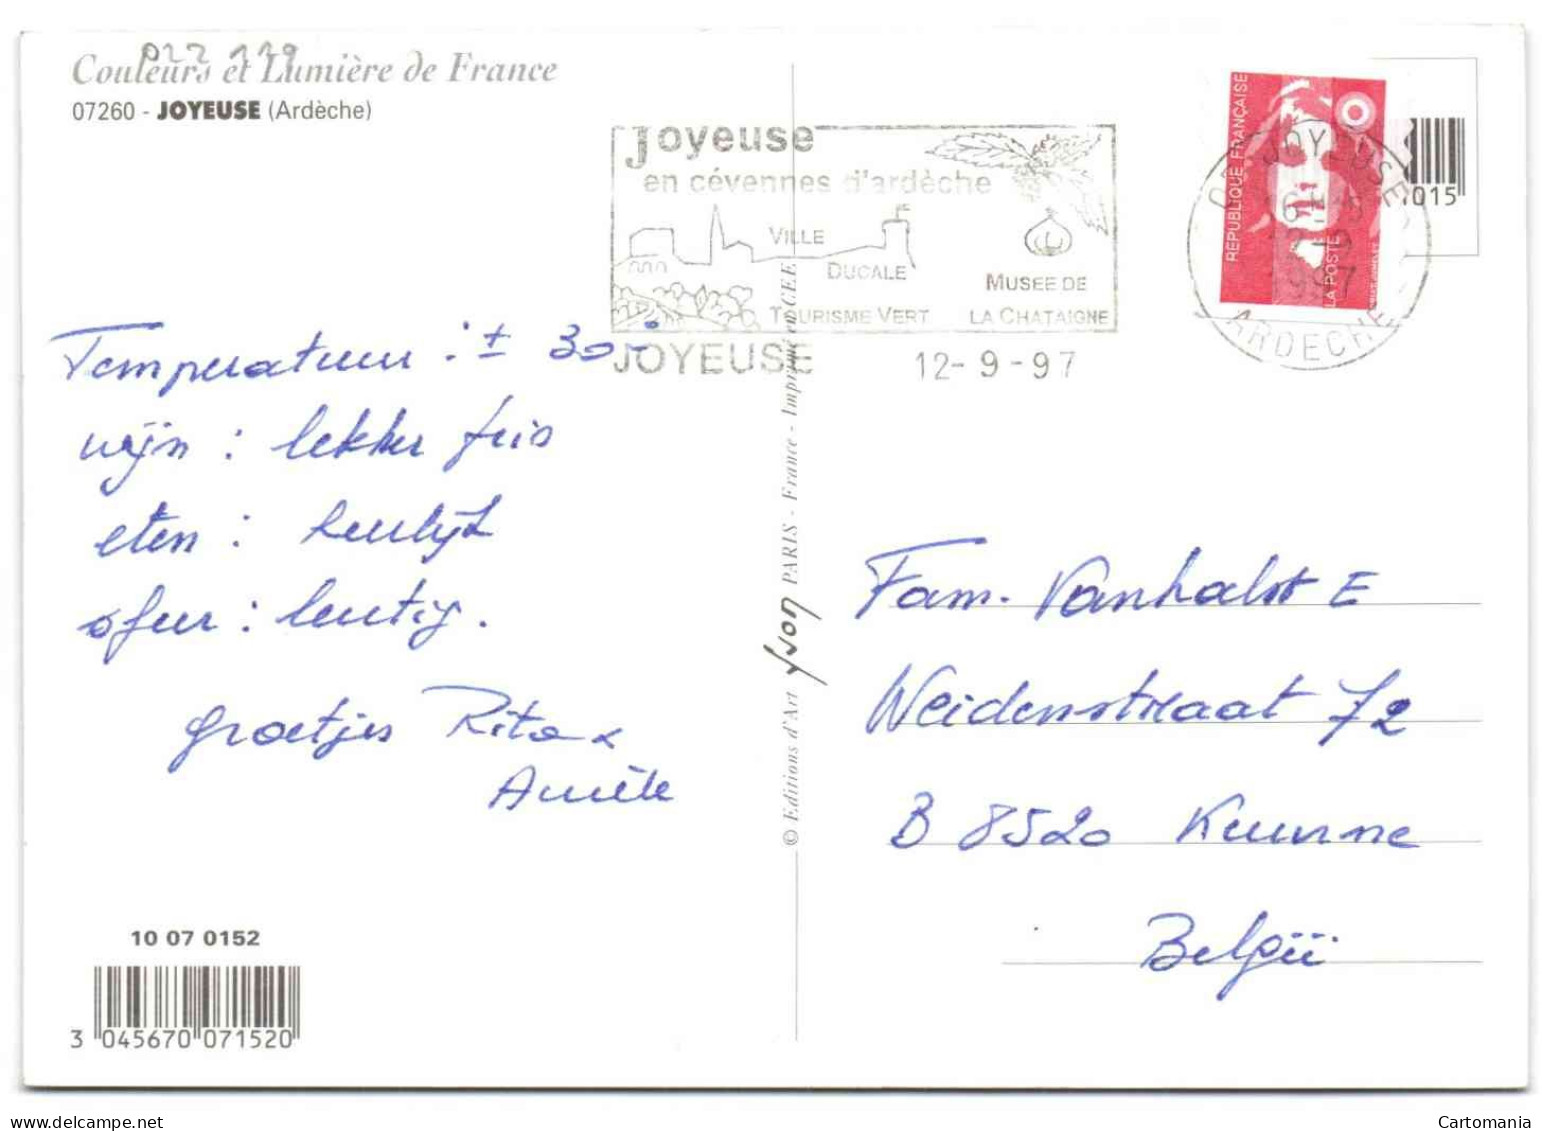 022 119
Couleurs et Lumière de France
07260 - JOYEUSE (Ardèche)
Joyeuse
en cévennes d'ardèche
VILLE
DUCALE
MUSEE DE
TOURISME VERT LA CHATAIGNE
JOYEUSE 12-9-97
RÉPUBLIQUE FRANÇAISE
LA POSTE
JOYEUSE
12-9
1997
ARDECHE
1015
Temperatuur : ± 30
wijn : lekker fris
eten : heerlijk
sfeer : lustig.
groetjes Rita
© Editions d'Art yvon PARIS - France - Imprimé en CEE
Fam. Vanhalst E
Weidenstraat 72
B 8520 Kuurne
België
10 07 0152
3 045670 071520
Cartomania